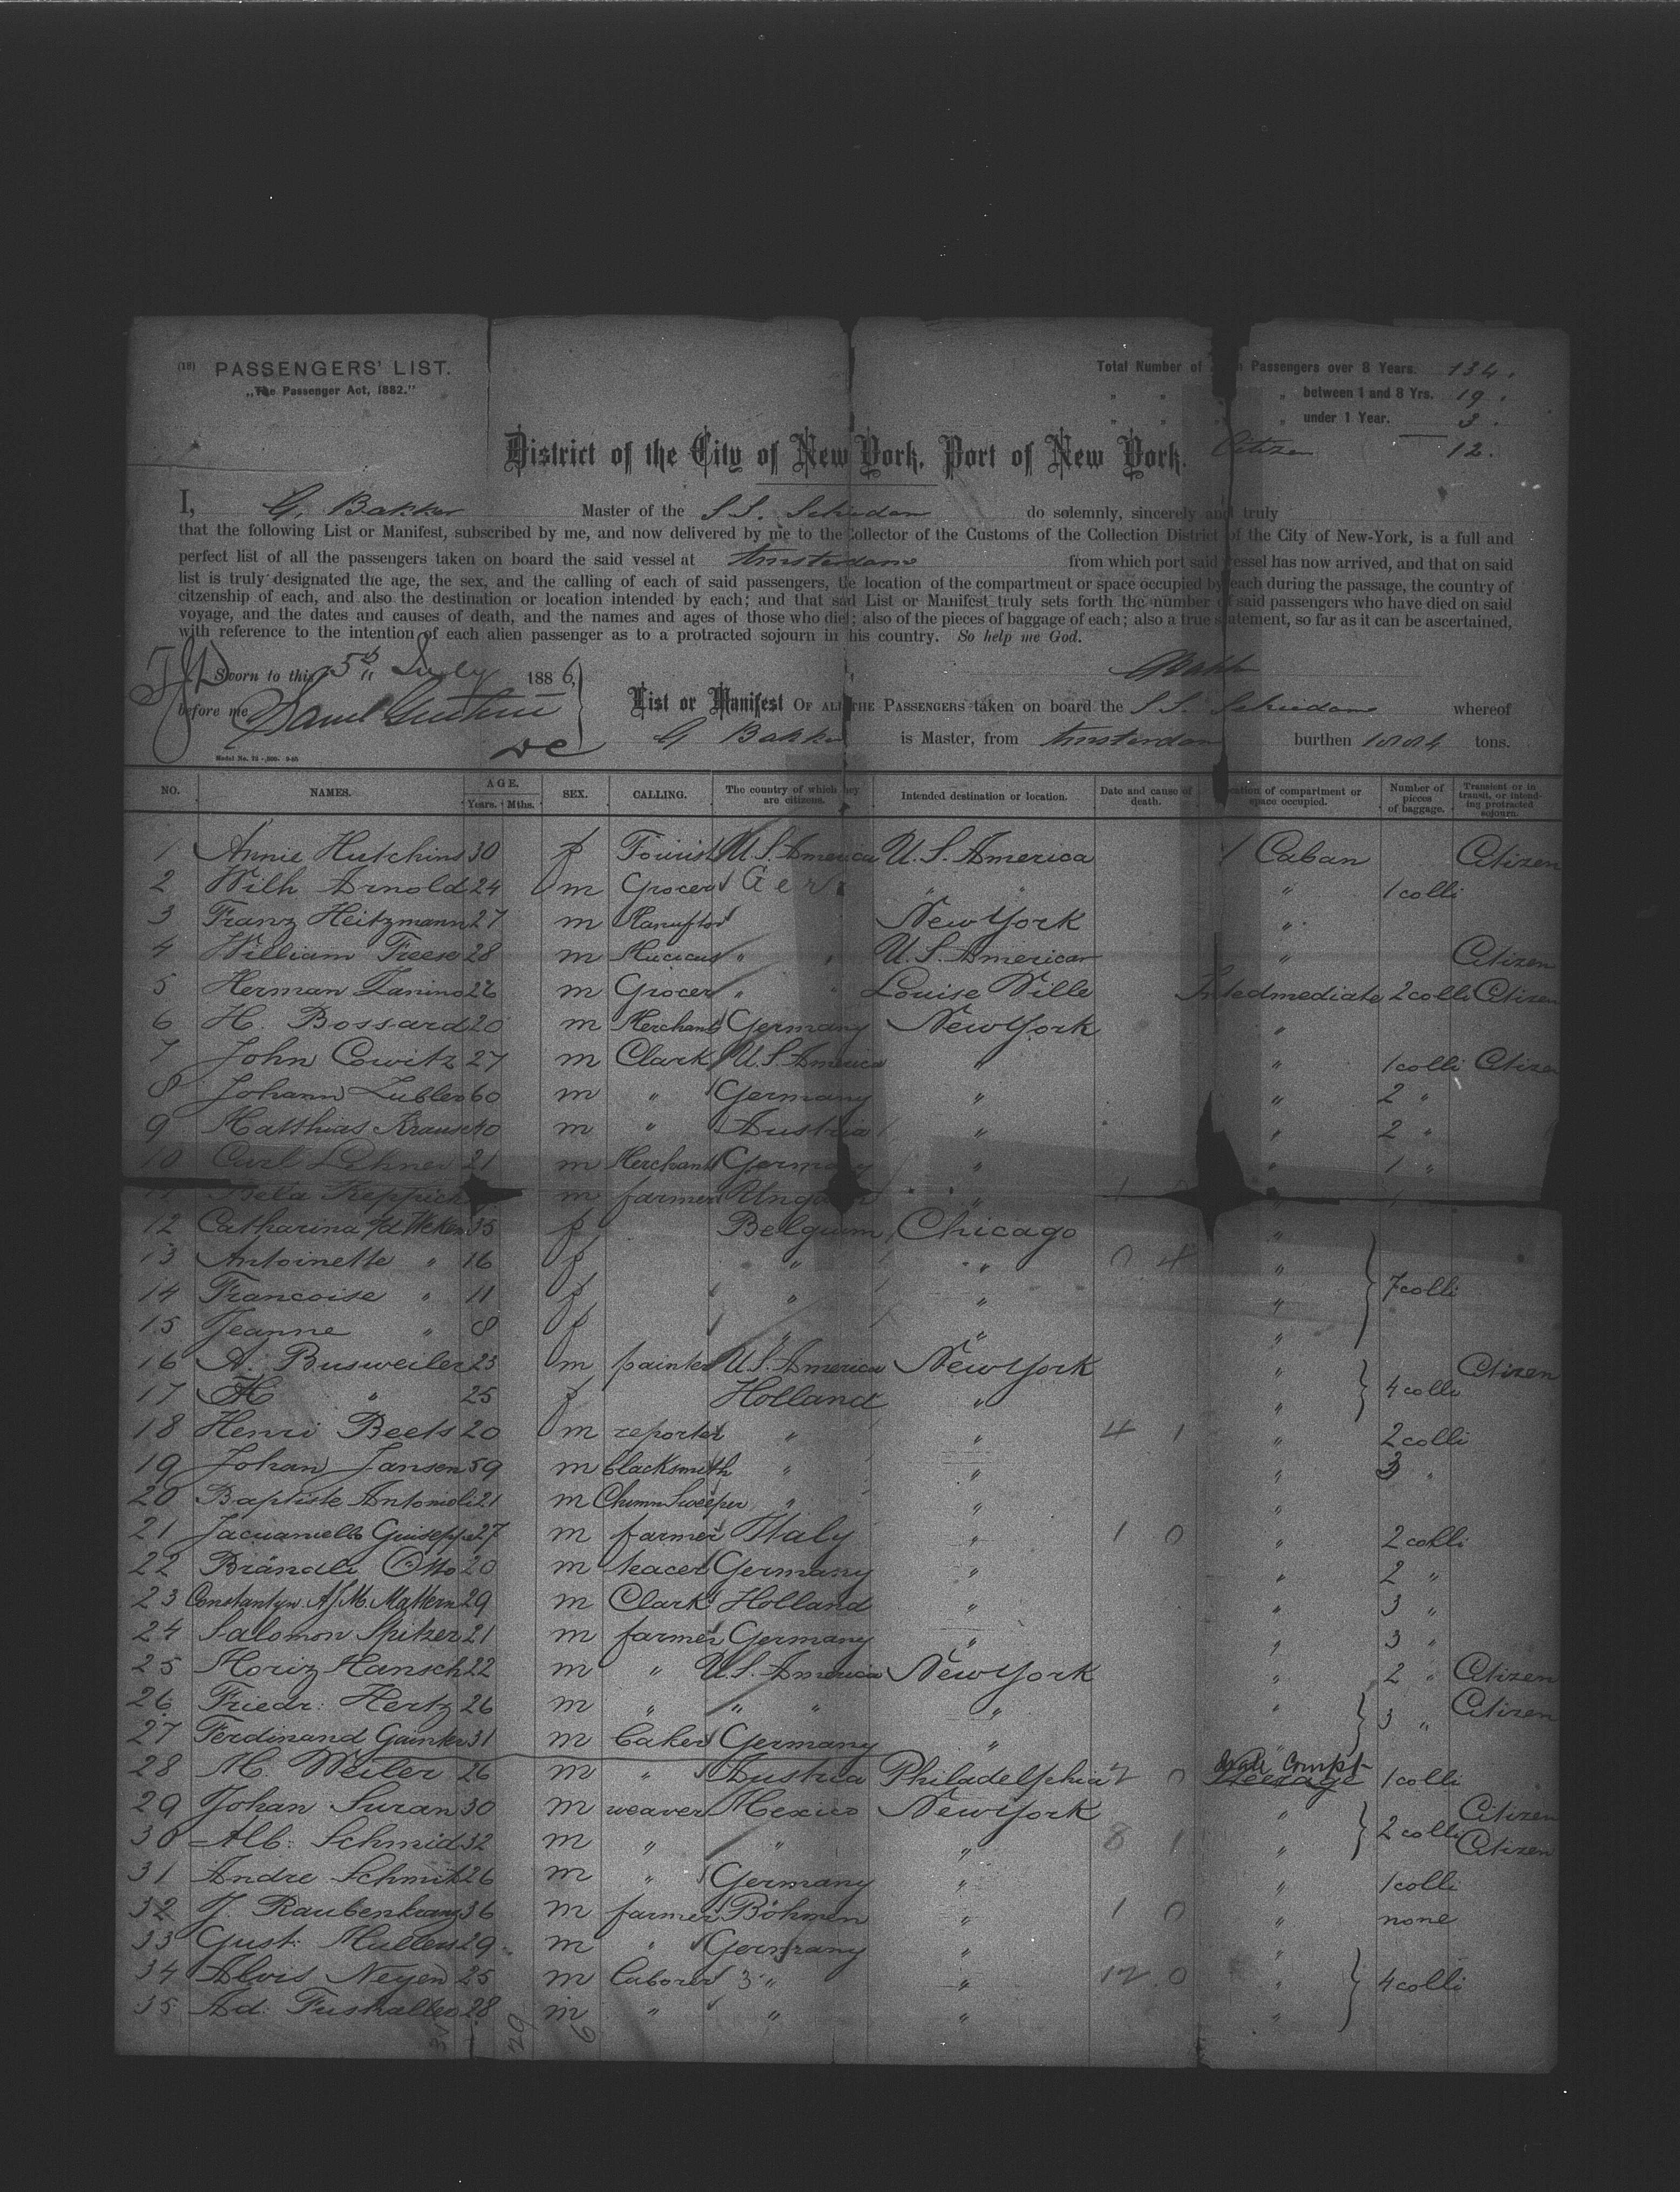 (18) PASSENGERS' LIST.
„The Passenger Act, 1882."
Total Number of Passengers over 8 Years. 134.
„ „ „ between 1 and 8 Yrs. 19.
„ „ „ under 1 Year. 3.
Citizen 12.
District of the City of New York, Port of New York.
I, G. Bakker Master of the S.S. Schiedam do solemnly, sincerely and truly
that the following List or Manifest, subscribed by me, and now delivered by me to the Collector of the Customs of the Collection District of the City of New-York, is a full and
perfect list of all the passengers taken on board the said vessel at Amsterdam from which port said vessel has now arrived, and that on said
list is truly designated the age, the sex, and the calling of each of said passengers, the location of the compartment or space occupied by each during the passage, the country of
citzenship of each, and also the destination or location intended by each; and that said List or Manifest truly sets forth the number of said passengers who have died on said
voyage, and the dates and causes of death, and the names and ages of those who died; also of the pieces of baggage of each; also a true statement, so far as it can be ascertained,
with reference to the intention of each alien passenger as to a protracted sojourn in this country. So help me God.
Sworn to this 5th July 1886, GBakker
before me
List or Manifest OF ALL THE PASSENGERS taken on board the S.S. Schiedam whereof
G Bakker is Master, from Amsterdam burthen tons.
NO. NAMES. AGE. Years. Mths. SEX. CALLING. The country of which they are citizens. Intended destination or location. Date and cause of death. Location of compartment or space occupied. Number of pieces of baggage. Transient or in transit, or intending protracted sojourn.
1 Annie Hutchins 30 f Tourist U.S. America U.S. America 1 Caban Citizen
2 Wilh Arnold 24 m Grocer Ger. „ „ „ 1 colli
3 Franz Heitzmann 27 m New York „
4 William Freese 28 m „ „ U.S. American „ Citizen
5 Herman 26 m Grocer „ „ Louise Ville Intedmediate 2 colli Citizen
6 H. Bossard 20 m Merchant Germany New York „
7 John Cowitz 27 m Clark U.S. America „ „ 1 colli Citizen
8 Johann 60 m „ Germany „ „ 2 „
9 Matthias Krause 40 m „ Austria „ „ 2 „
10 Carl Lehner 21 m Merchant Germany „ „ 1 „
11 Bela m farmer Ungarn „ „
12 Catharina 35 f Belgium Chicago „
13 Antoinette „ 16 f „ „ „
14 Francoise „ 11 f „ „ „ 7 colli
15 Jeanne „ 8 f „ „ „
16 A. Busweiler 23 m painter U.S. America New York „ Citizen
17 „ 25 f Holland „ „ 4 colli
18 Henri Beets 20 m reporter „ „ 4 1 „ 2 colli
19 Johan Jansen 59 m blacksmith „ „ „ 3 „
20 Baptiste Antonioli 21 m Chimn Sweeper „ „ „
21 Guiseppe 27 m farmer Italy „ 1 0 „ 2 colli
22 Brändli Otto 20 m teacer Germany „ „ 2 „
23 Constantyn A.J.M. Mattern 29 m Clark Holland „ „ 3 „
24 Salomon Spitzer 21 m farmer Germany „ „ 3 „
25 Moriz Hansch 22 m „ U.S. America New York „ 2 „ Citizen
26 Friedr: Hertz 26 m „ „ „ „ „ Citizen
27 Ferdinand 31 m baker Germany „ „ 3 „
28 M. Weiler 26 m „ Austria Philadelphia Compt Steerage 1 colli
29 Johan Suran 30 m weaver Mexico New York „ Citizen
30 Alb: Schmid 32 m „ „ „ 8 1 „ 2 colli Citizen
31 Andre Schmit 26 m „ Germany „ „ 1 colli
32 J. Raubenkranz 36 m farmer Böhmen „ 1 0 „ none
33 Gust: Mullers 29 m „ Germany „ „
34 Alvis Neyen 25 m laborer „ „ 12 0 „ 4 colli
35 Ad: 28 m „ „ „ „